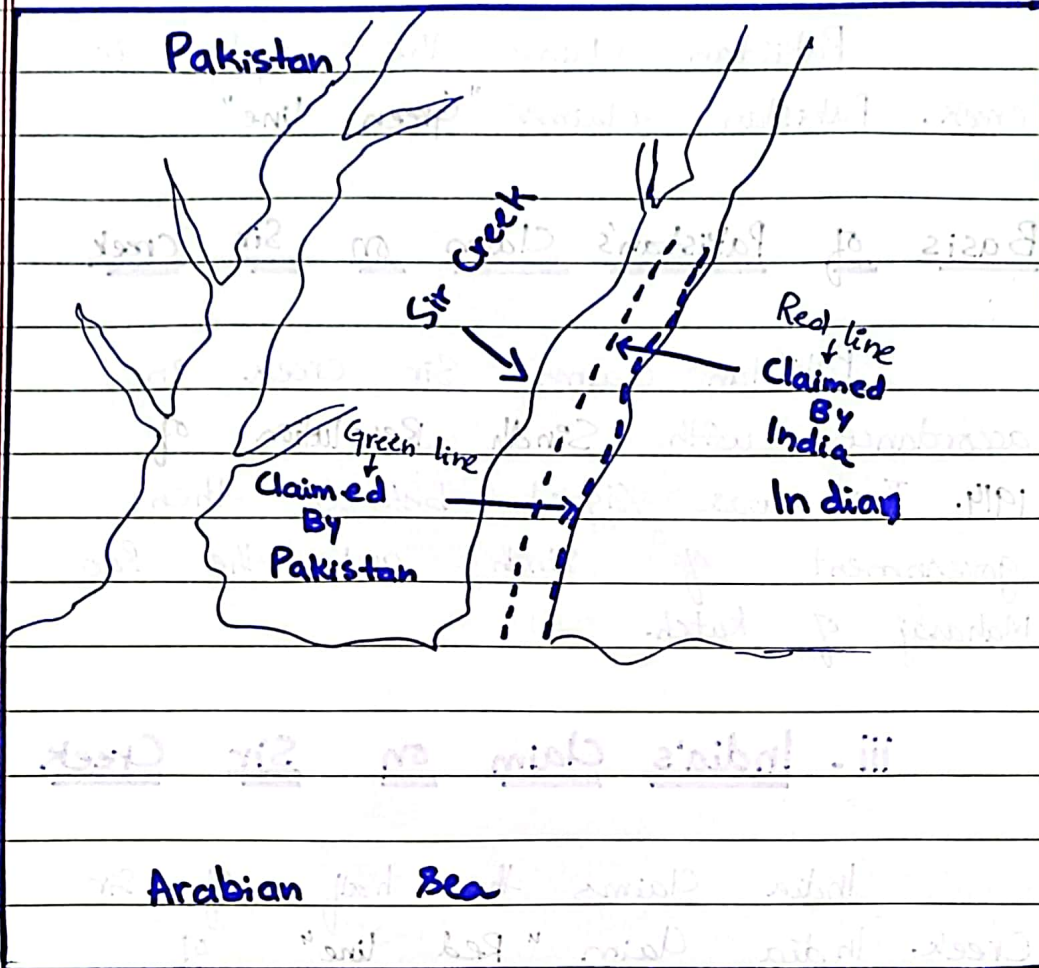 Pakistan
Sir Creek
Red line
Claimed
By
India
Green line
Claimed
By
Pakistan
India
Arabian Sea